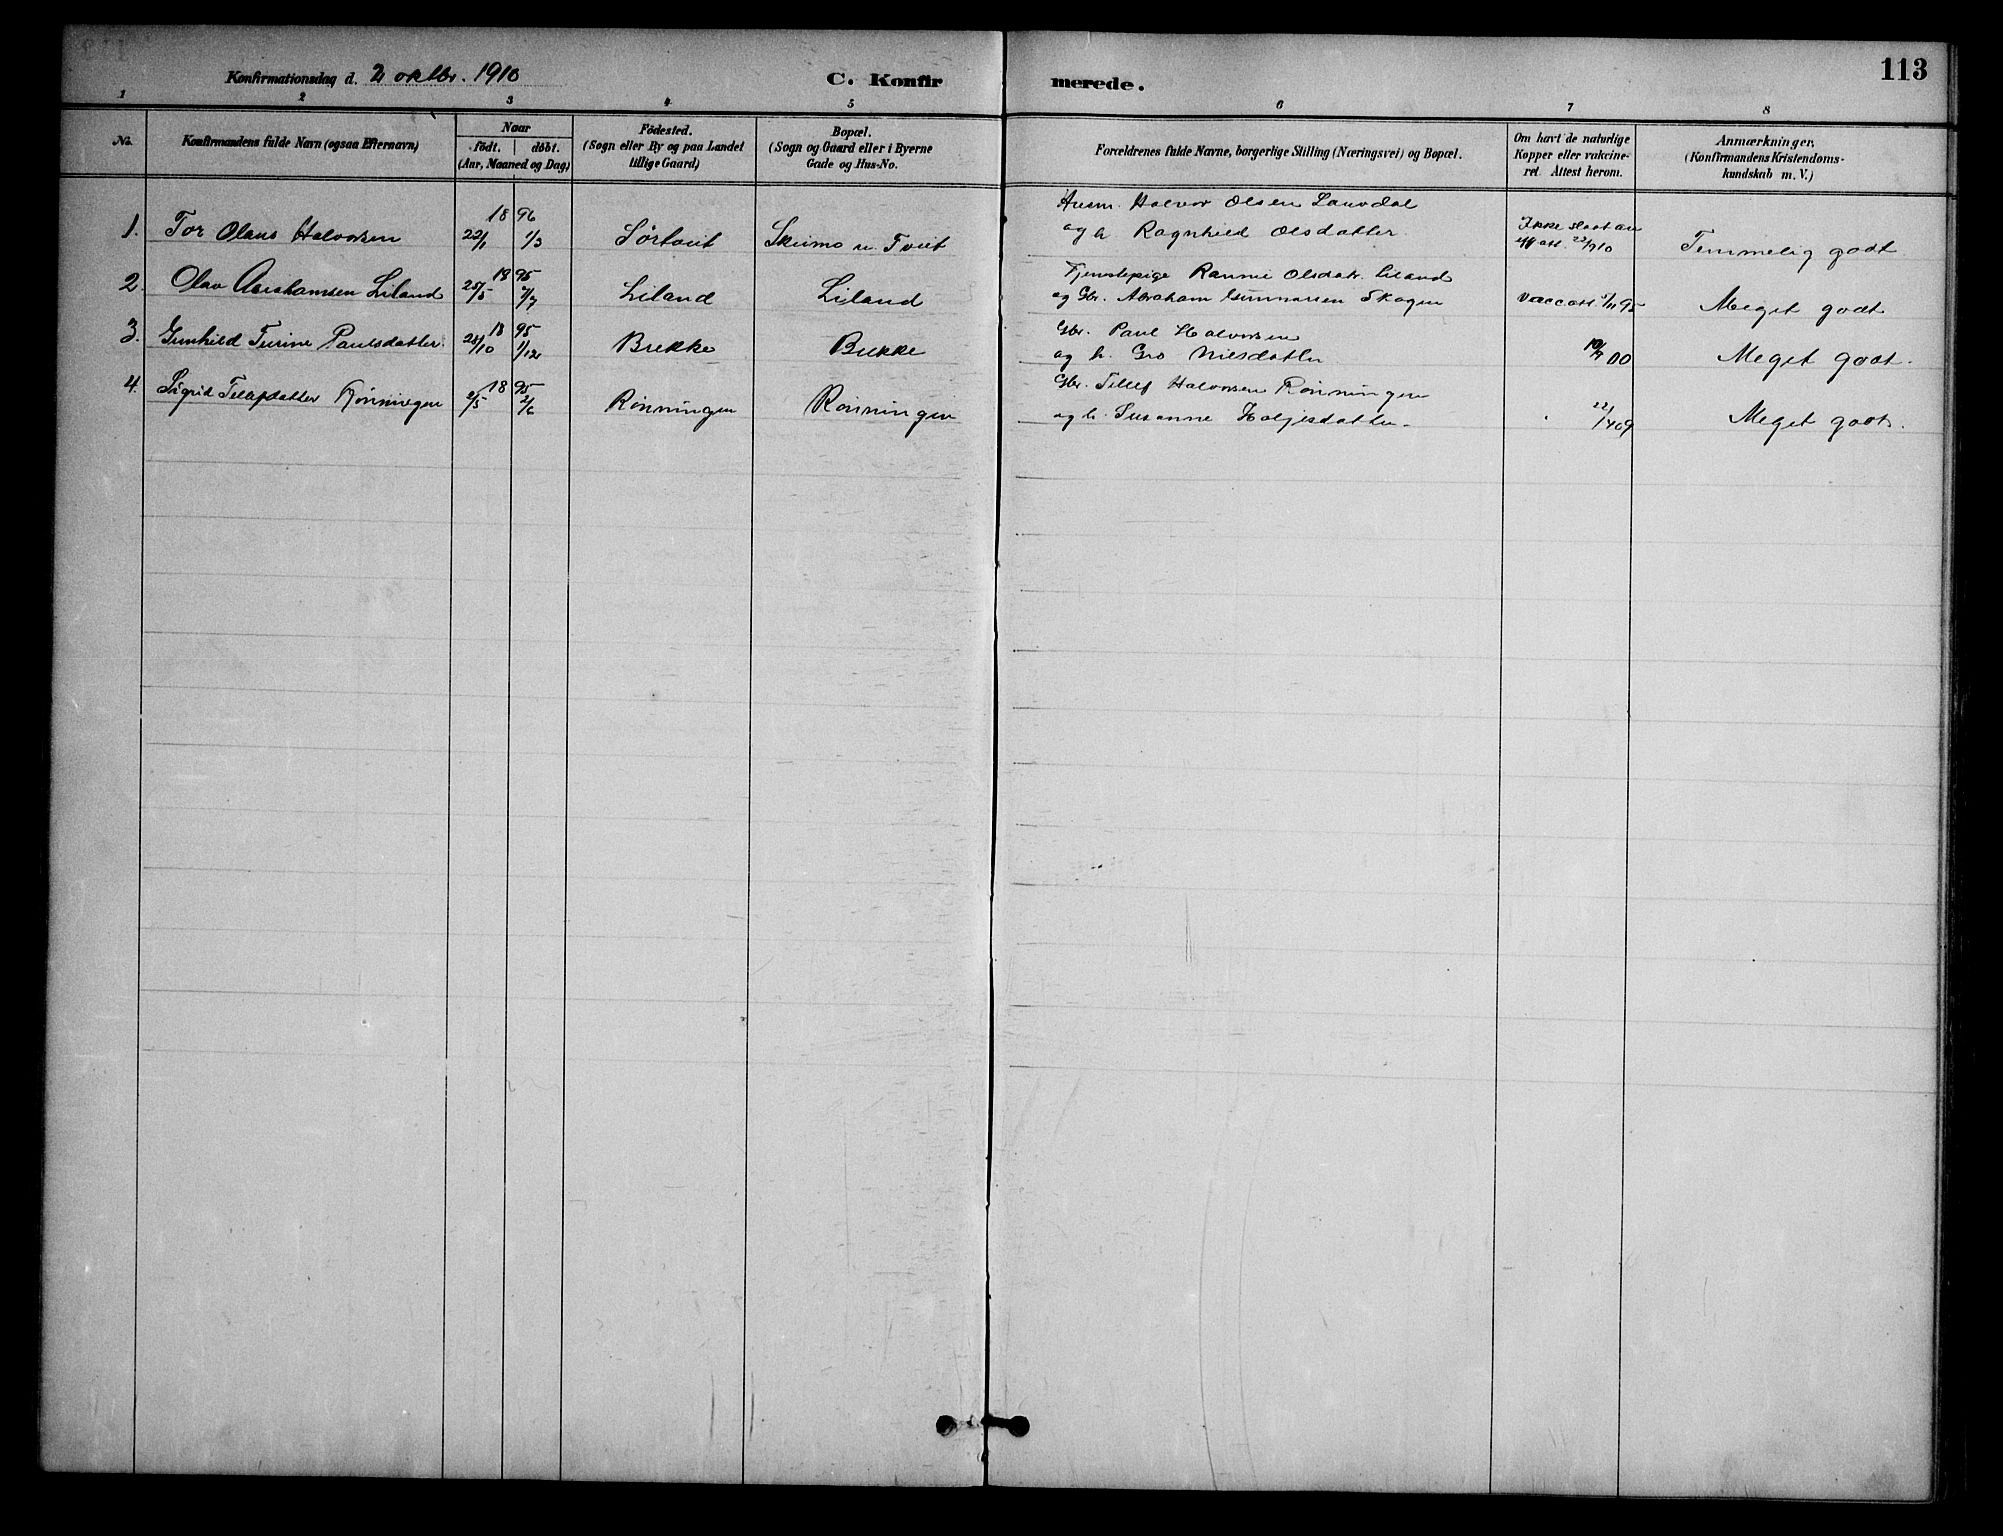 113
Konfirmationsdag d. 2 oktbr. 1910 C. Konfir merede.
1 2 3 4 5 6 7 8
No. Konfirmandens fulde Navn (ogsaa Efternavn) Naar födt. döbt. (Aar, Maaned og Dag) Födested. (Sogn eller By og paa Landet tillige Gaard) Bopæl. (Sogn og Gaard eller i Byerne Gade og Hus-No. Forældrenes fulde Navne, borgerlige Stilling (Næringsvei) og Bopæl. Om havt de naturlige Kopper eller vakcineret. Attest herom. Anmærkninger. (Konfirmandens Kristendomskundskab m. V.)
18 96 Halvor Olsen
1. Tor Olaus Halvorsen 22/1 1/3 og h. Ragnhild Olsdatter Ikke slaat an att. 10 Temmelig godt
18 95 Tjenstepige Olsdatr. Liland
2. Olav Abrahamsen Liland 25/5 7/7 Liland Liland og Gbr. Abraham Gunnarsen Skogen Vacc att. 95 Meget godt
18 95 Gbr. Paul Halvorsen
3. Gunhild Turine Paulsdatter 28/10 1/12 Brekke Brekke og h. Gro Nilsdatter 00 Meget godt.
18 95 Gbr. Tellef Halvorsen Rönningen
4. Sigrid Tellefsdatter Rönningen 2/5 2/6 Rönningen Rönningen og h. Susanne 22/4 09 Meget godt.